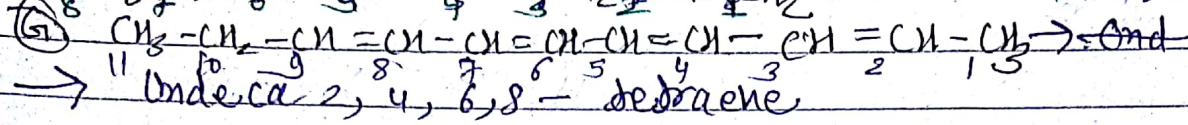 G) CH3-CH2-CH=CH-CH=CH-CH=CH-CH=CH-CH3→
11 10 9 8 7 6 5 4 3 2 1
→ Undeca 2, 4, 6, 8 - tetraene